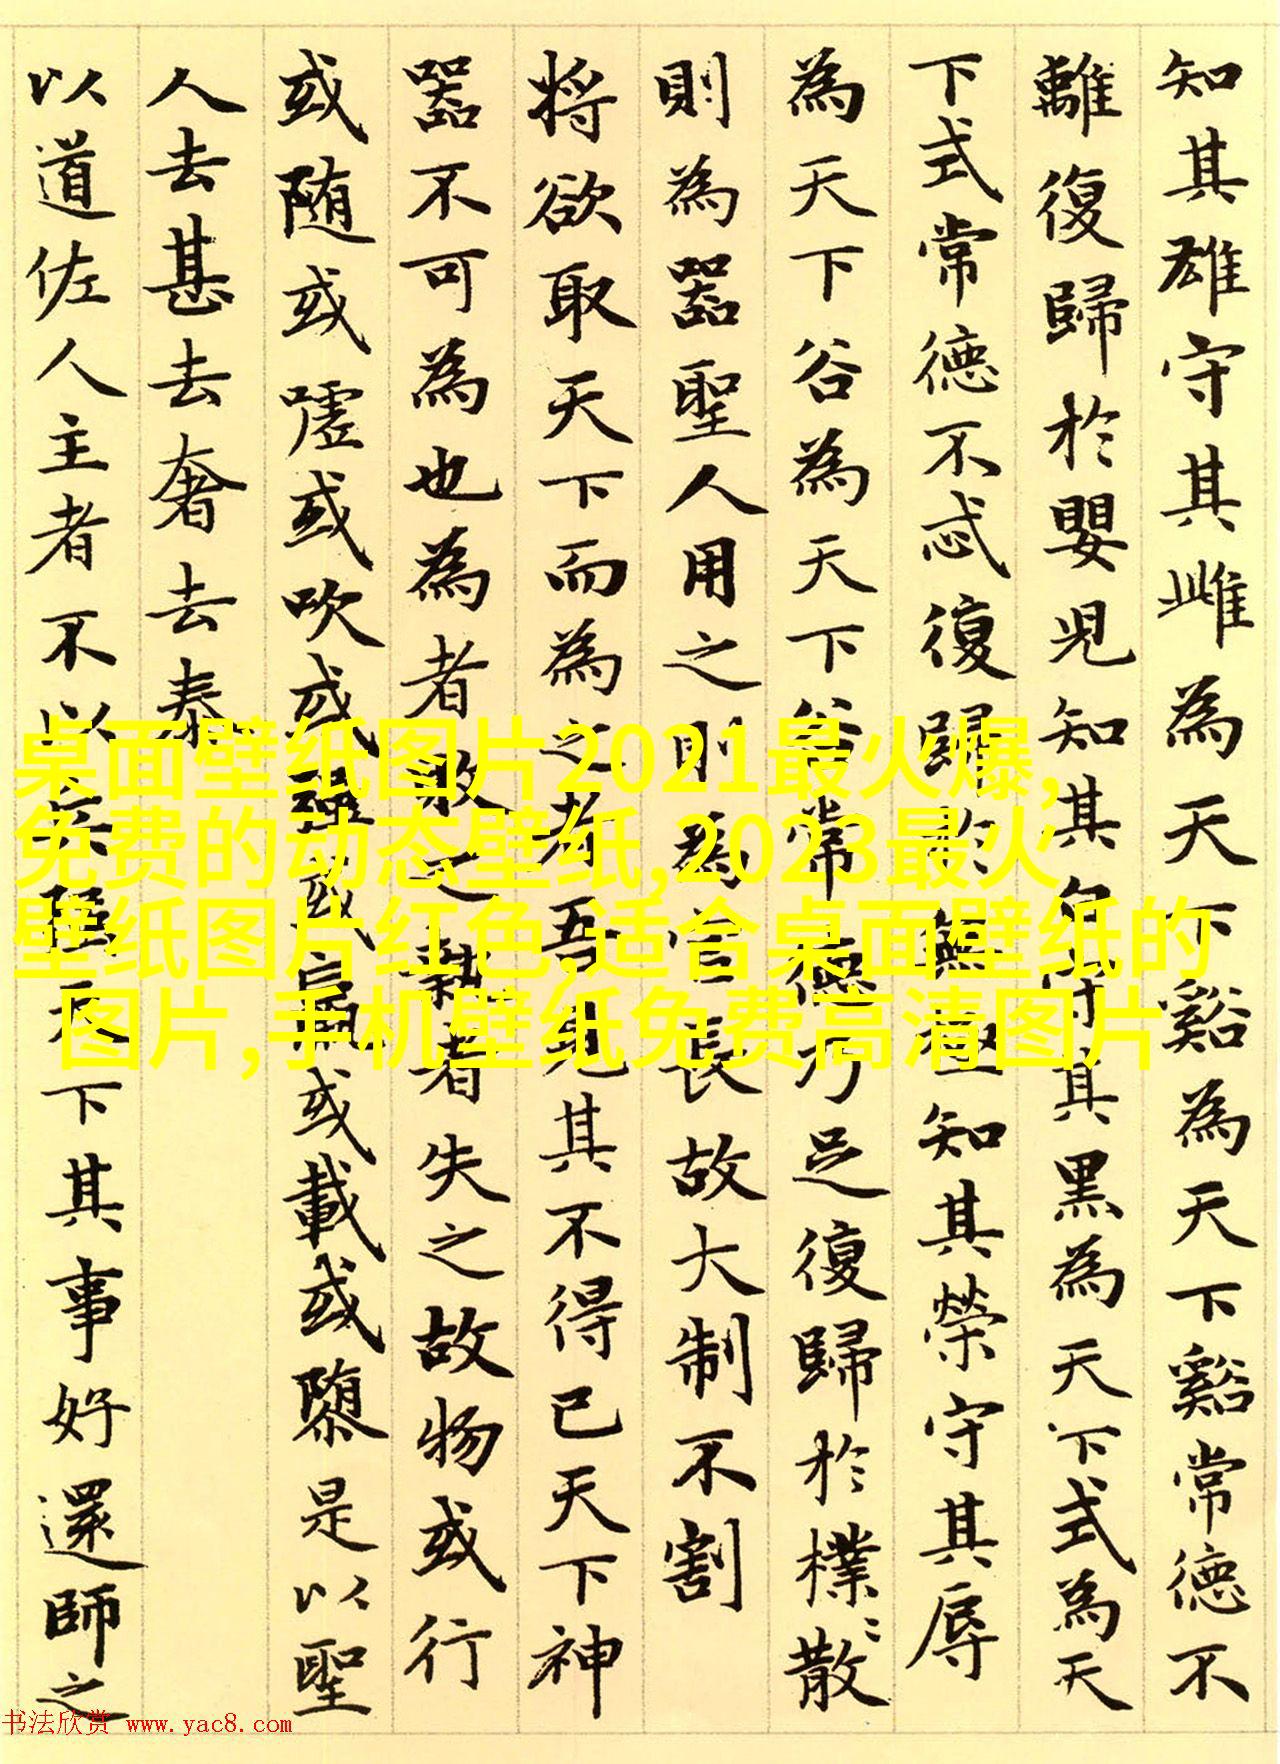 知其雄守其雌為天下谿為天下谿常德不
離復歸於嬰兒知其白守其黑為天下式為天
下式常德不忒復歸於無極知其榮守其辱
為天下谷為天下谷常德乃足復歸於樸〻散
則為器聖人用之則為官長故大制不割
将欲取天下而為之者吾見其不得已天下神
器不可為也為者敗之執者失之故物或行
或随或嘘或吹或强或羸或載或隳是以聖
人去甚去奢去泰
以道佐人主者不以兵强天下其事好還師之
桌面壁纸图片2021最火爆,
免费的动态壁纸,2023最火
壁纸图片红色,适合桌面壁纸的
图片,手机壁纸免费高清图片
书法欣赏 www.yac8.com